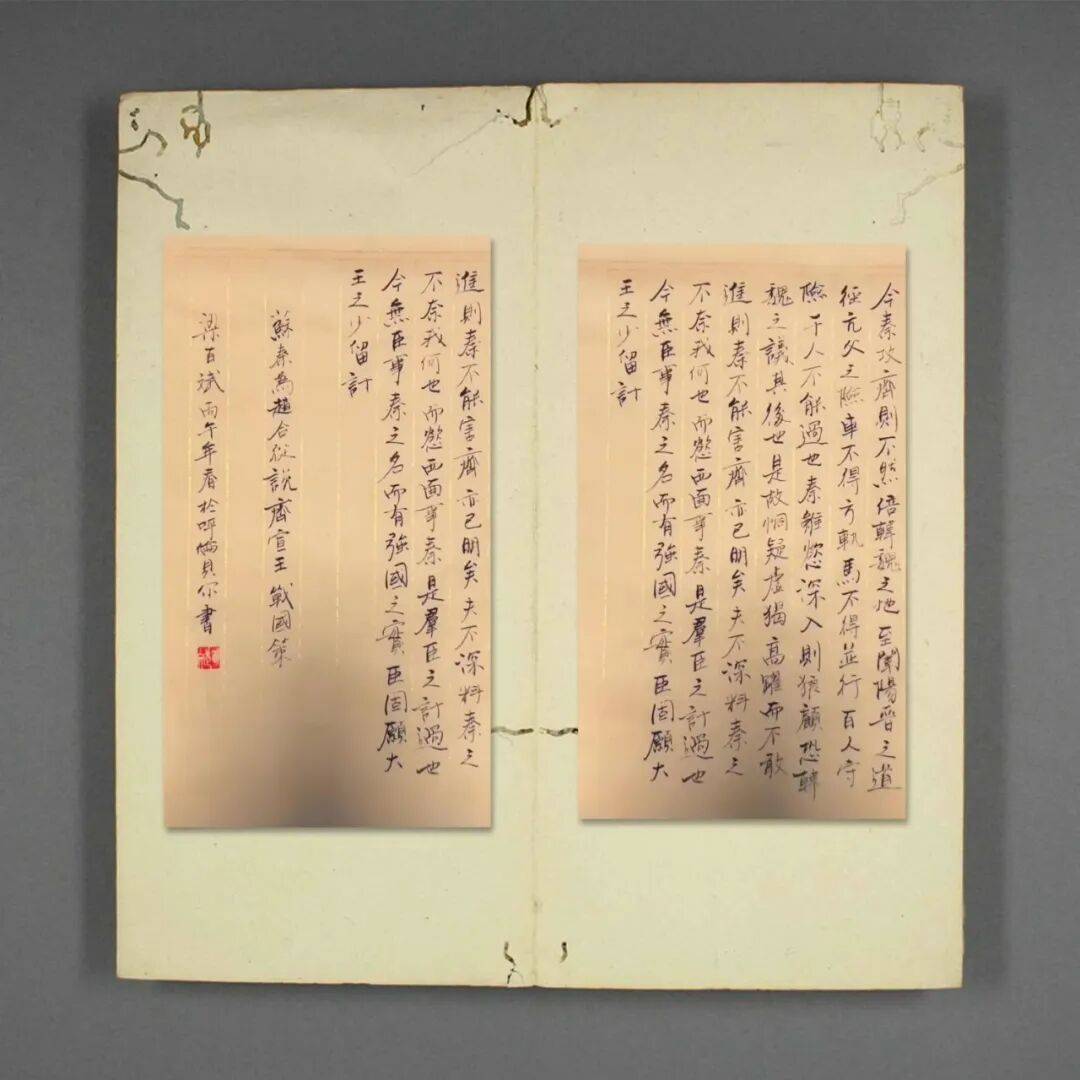 今秦攻齊則不然倍韓魏之地至闈陽晉之道
徑亢父之險車不得方軌馬不得並行百人守
險千人不能過也秦雖慾深入則狼顧恐韓
魏之議其後也是故恫疑虛猲高躍而不敢
進則秦不能害齊亦已明矣夫不深料秦之
不奈我何也而慾西面事秦是羣臣之計過也
今無臣事秦之名而有強國之實臣固願大
王之少留計
進則秦不能害齊亦已明矣夫不深料秦之
不奈我何也而慾西面事秦是羣臣之計過也
今無臣事秦之名而有強國之實臣固願大
王之少留計
蘇秦為趙合從說齊宣王 戰國策
梁百斌 丙午年春於呼倫貝尔書